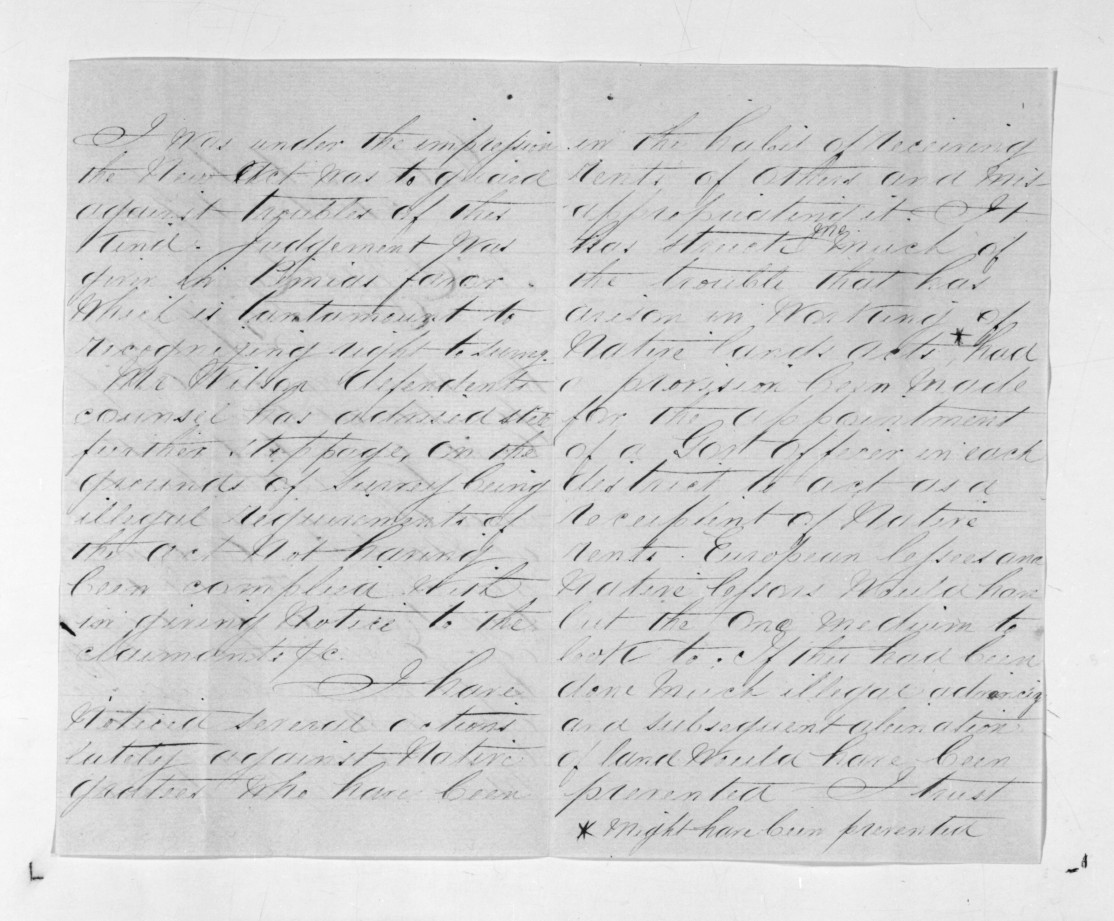 I was under the impression
the New Act was to guard
against troubles of this
kind. Judgement was
givin in Rimias favor.
Which is tantamount to
recognizing right to survey.
Mr Wilson defendents
counsel has advised
further stoppage, on the
grounds of survey being
illegal requirements of
the act Not having
been complied With
in giving Notice to the
claimants &c.
I have
Noticed several actions
lately against Native
grantees Who have been
in the habit of receiving
rents of others and mis-
appropriating it. It
has struck me much of
the trouble that has
arison in Working of
Native lands acts * had
a provision been Made
for the appointment
of a Govt Officer in each
district to act as a
recipient of Native
rents. European lessees and
Native lessors Would have
but the One Medium to
look to. If this had been
done Much illegal advancing
and subsequent alienation
of land Would have been
prevented I trust
* Might have been prevented